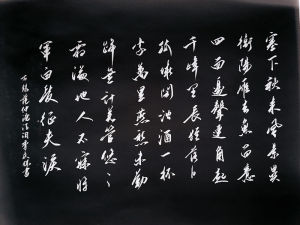 塞下秋來風景異
衡陽雁去無留意
四面邊聲連角起
千嶂里長煙落日
孤城閉濁酒一杯
家萬里燕然未勒
歸無計羌管悠〻
霜滿地人不寐將
軍白髮征夫淚
范仲淹詞 書